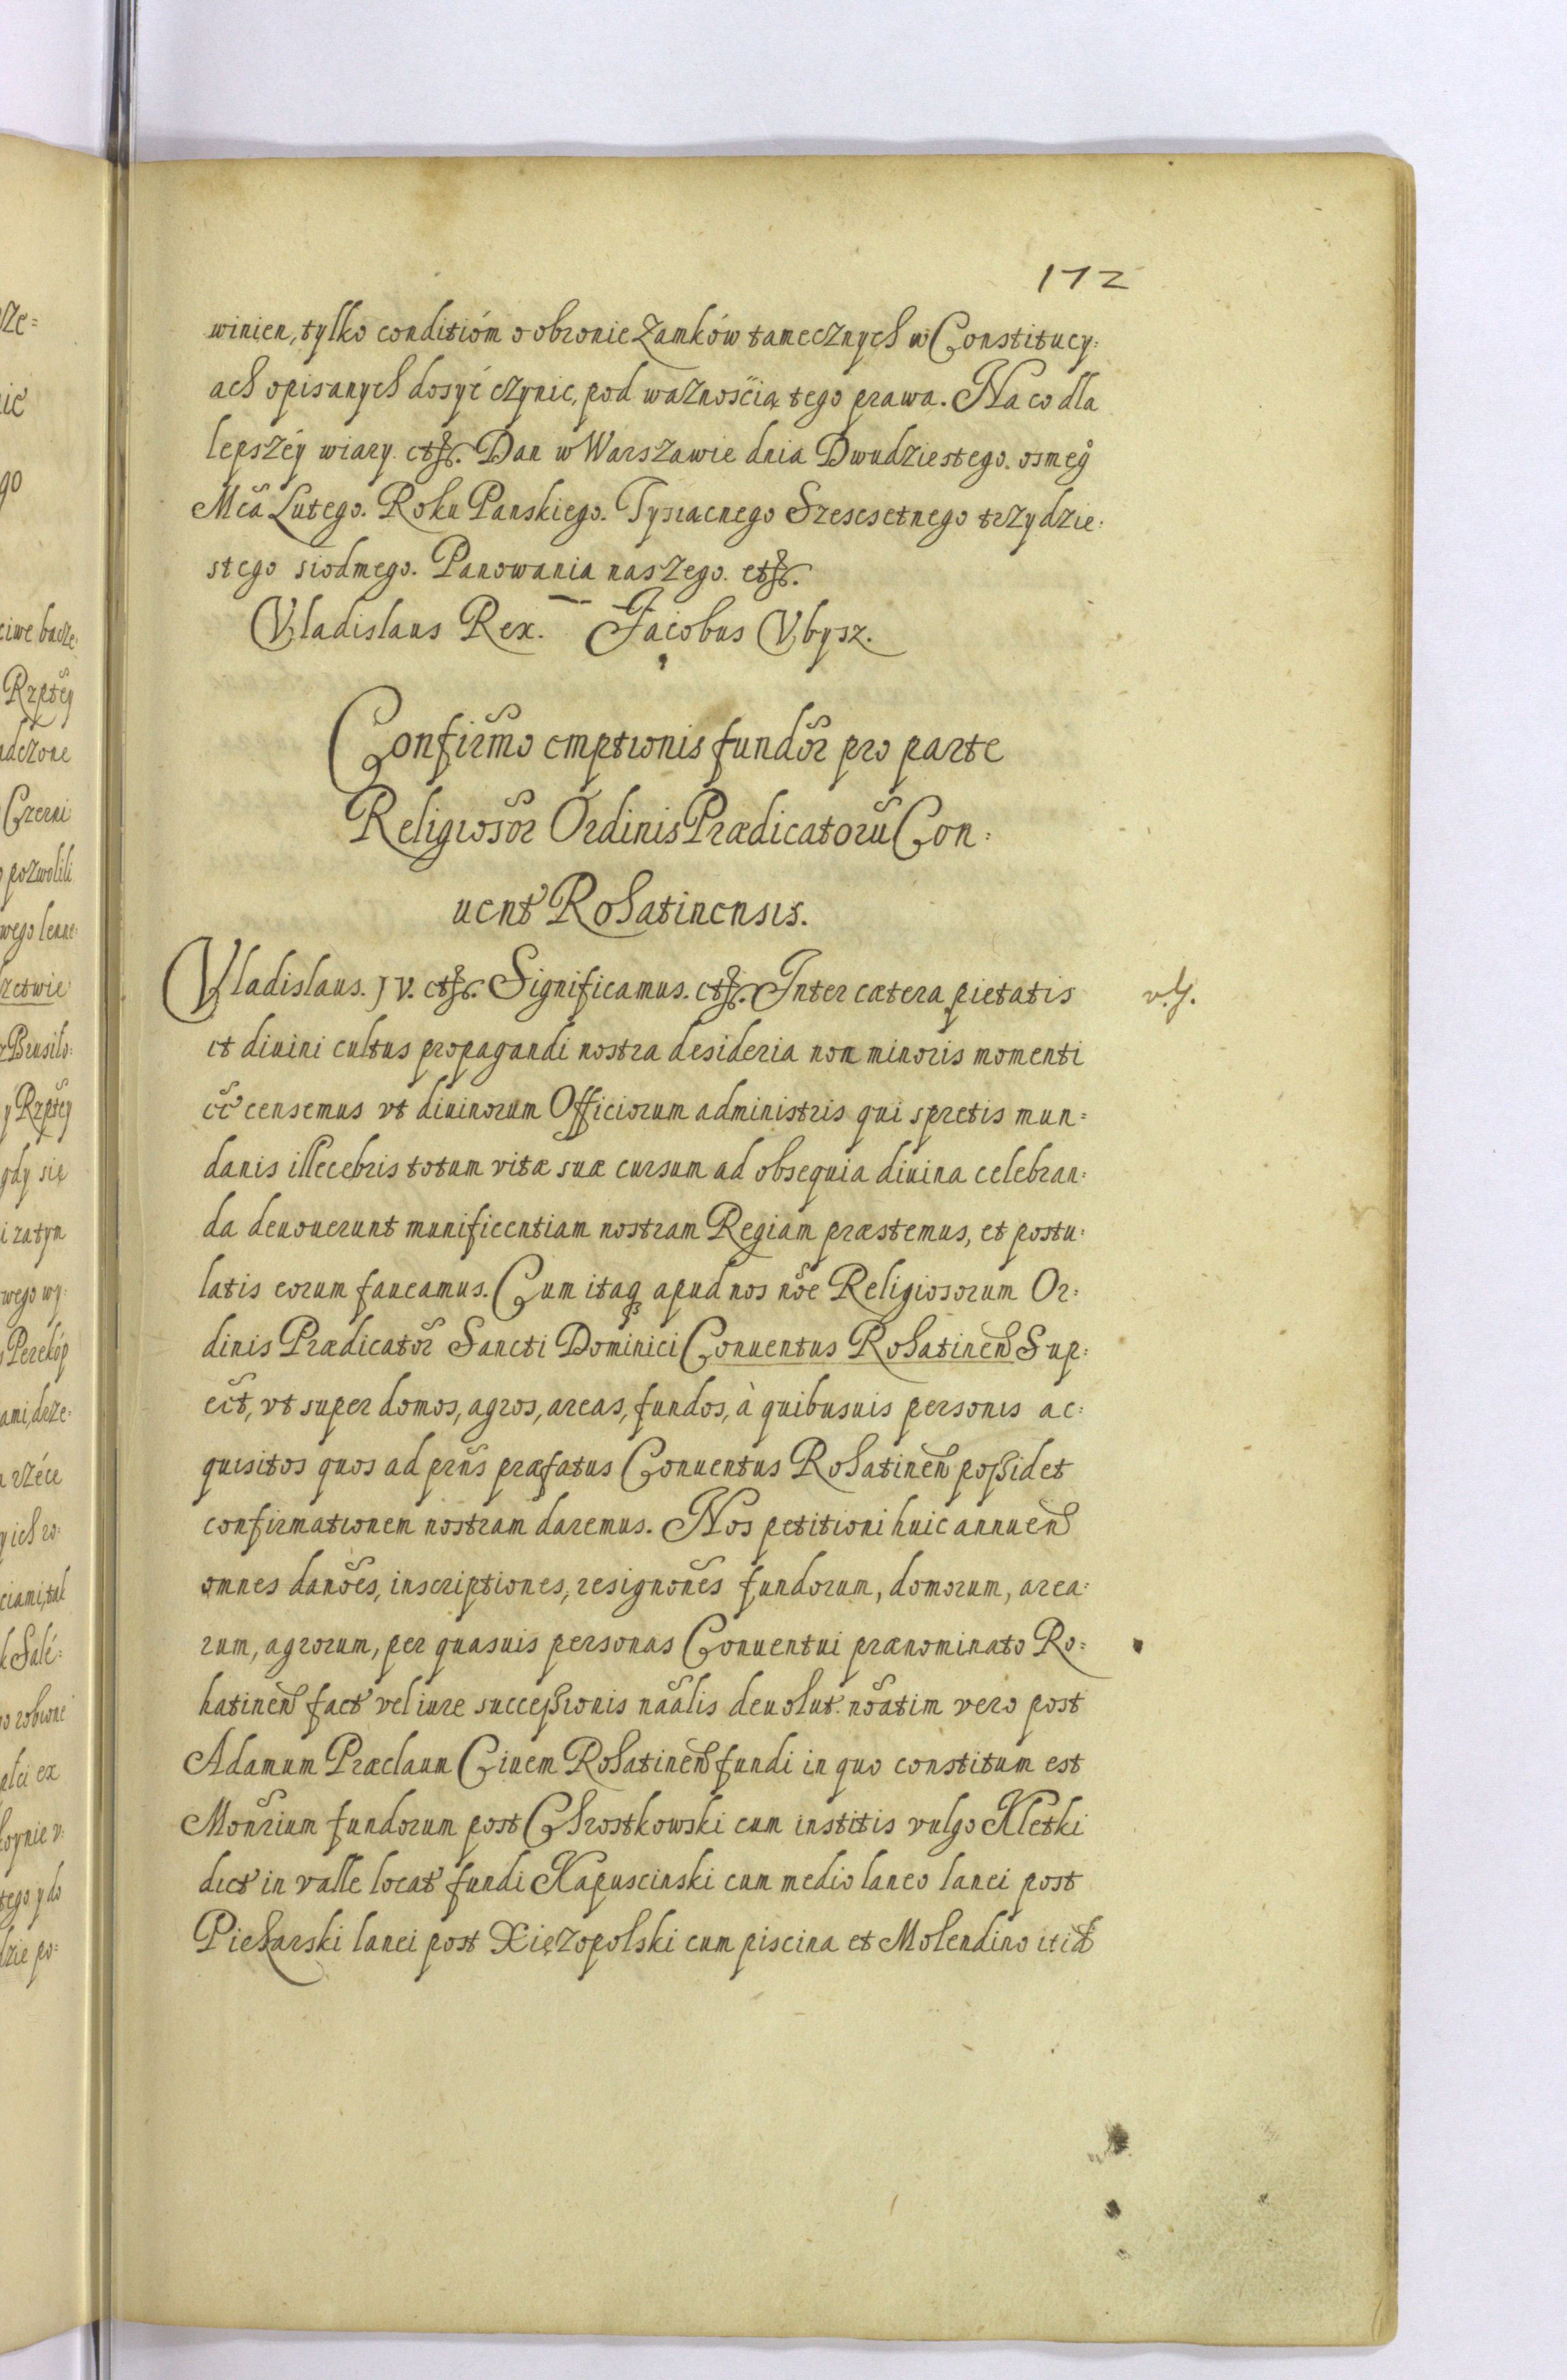 172
winien, tylko conditióm o obronie Zamków tamecznych w Constitucy:
ach opisanych dosyć czynic, pod waznością tego prawa. Na co dla
lepszéy wiary. etc. Dan w Warszawie dnia Dwudziestego. osmeg̊
Mc̃a Lutego. Roku Panskiego. Tysiacnego Szescsetnego trzydzie:
stego siodmego. Panowania naszego. etc.
Vladislaus Rex. Jacobus Vbysz.
Confirm̃o emptionis fundor̃ pro parte
Religiosor̃ Ordinis Prædicatorũ Con:
uent Rohatinensis.
Vladislaus. IV. etc. Significamus. etc. Inter cætera pietatis
v. G.
et diuini cultus propagandi nostra desideria non minoris momenti
ẽe censemus vt diuinorum Officiorum administris qui spretis mun=
danis illecebris totum vitæ suæ cursum ad obsequia diuina celebran:
da deuouerunt munificentiam nostram Regiam præstemus, et postu:
latis eorum faueamus. Cum itaq apud nos nõe Religiosorum Or:
dinis Prædicator̃ Sancti Dominici Conuentus Rohatinen Sup:
ect̃, vt super domos, agros, areas, fundos, à quibusuis personis ac:
quisitos quos ad prñs præfatus Conuentus Rohatinen possidet
confirmationem nostram daremus. Nos petitioni huic annuen
omnes danões, inscriptiones, resignoñes fundorum, domorum, area:
rum, agrorum, per quasuis personas Conuentui prænominato Ro=
hatinen fact vel iure successionis nãalis deuolut. nõatim vero post
Adamum Præclaum Ciuem Rohatinen fundi in quo constitum est
Monr̃ium fundorum post Chrostkowski cum institis vulgo Kletki
dict in valle locat fundi Kapuscinski cum medio laneo lanei post
Piekarski lanei post Xięzopolski cum piscina et Molendino itid